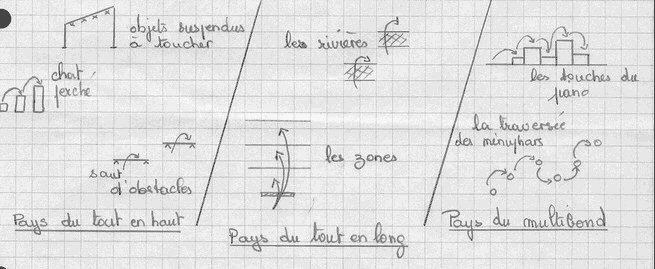 objets suspendus
à toucher
chat
perché
saut
d'obstacles
Pays du tout en haut
les rivières
les zones
Pays du tout en long
les touches du
piano
la traversée
des nénuphars
Pays du multibond